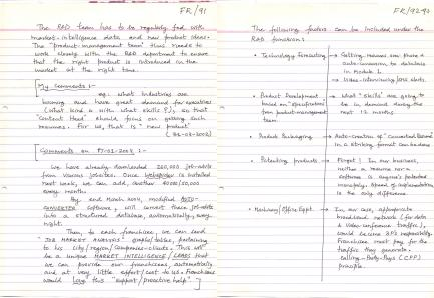 FR/91
The R&D team has to be regularly fed with
market-intelligence data and new product ideas.
The "product-management team" thus needs to
work closely with the R&D department to ensure
that the right product is introduced in the
market at the right time.
My Comments :-
eg: what industries are
booming and have great demand for executives
(What kind & with what skills?), so that
"Content team" should focus on getting such
resumes. For us, that is "new product"
Comments on
We have already downloaded 200,000 job-advts
from various jobsites. Once is installed
next week, we can add, another 40000/50,000
every month.
By end March 2004, modified AUTO-
CONVERTER software, will convert these job-advts
into a structured database, automatically, every
night.
Then, to each franchisee, we can send
"JOB MARKET ANALYSIS" graphs/tables, pertaining
to his city/region/companies-clients. This will
be a unique MARKET INTELLIGENCE / LEADS that
we can provide our franchisees automatically
and at very little effort/cost to us. Franchisees
would love this "support/proactive help"
FR/92
The following factors can be included under the
R&D functions.
• Technology Forecasting → Getting resumes over phone &
auto-conversion to database
in Module 1.
→ Video-interviewing/job alerts
• Product Development → What "skills" are going to
based on "specifications" be in demand during the
from product-management next 12 months
team
• Product Packaging → Auto-creation of Converted Resume
in a striking format
• Patenting products → Forget! In our business,
neither a resume nor a
software is anyone's patented
monopoly. Speed of implementation
is the only difference.
• Machinery/Office Eqpt. → In our case, appropriate
broadband network (for data
& Video-conference traffic),
would become 3P's responsibility.
Franchisees must pay for the
traffic they generate.
Calling-Party-Pays (CPP)
principle.